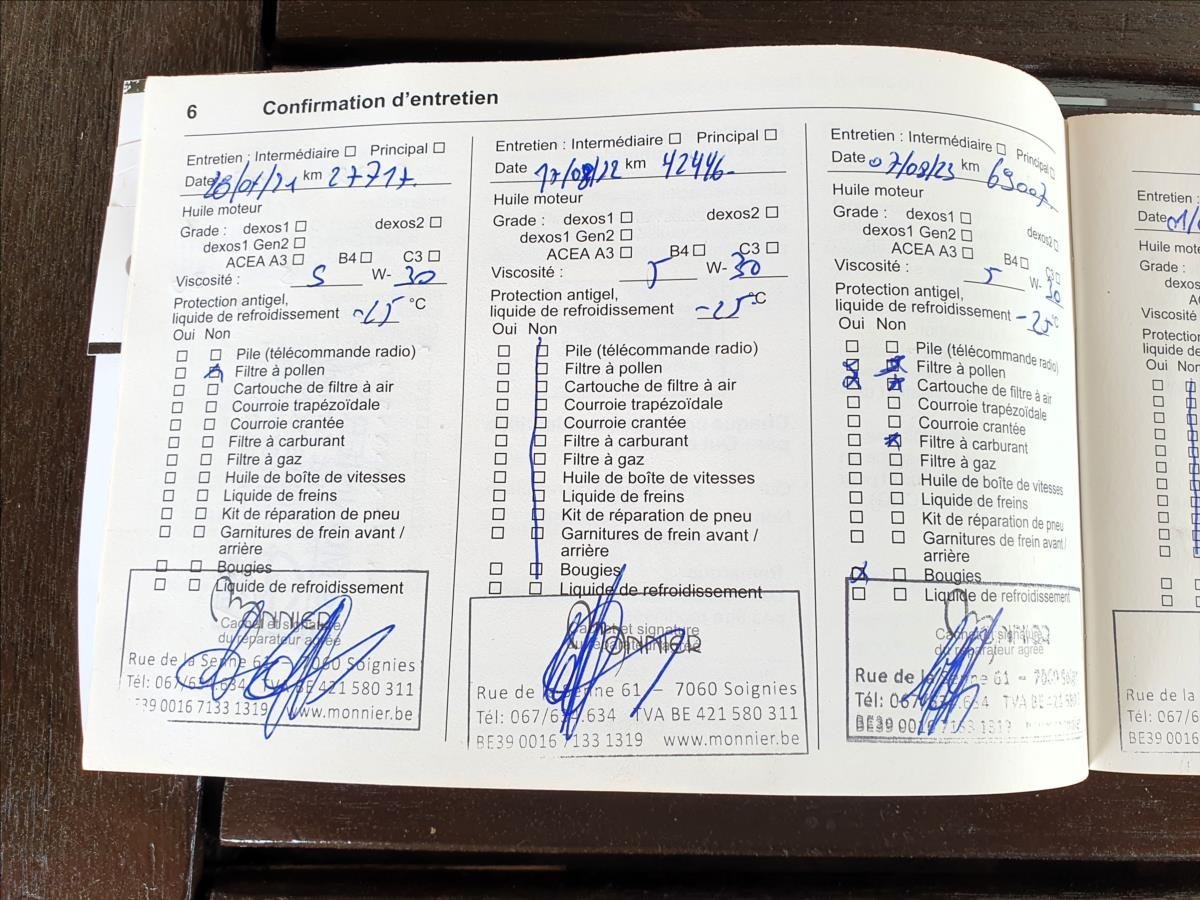 6 Confirmation d'entretien
Entretien : Intermédiaire Principal
Date km 27717
Huile moteur
Grade : dexos1 dexos2
dexos1 Gen2
ACEA A3 B4 C3
Viscosité : 5 W- 30
Protection antigel,
liquide de refroidissement -25 °C
Oui Non
Pile (télécommande radio)
Filtre à pollen
Cartouche de filtre à air
Courroie trapézoïdale
Courroie crantée
Filtre à carburant
Filtre à gaz
Huile de boîte de vitesses
Liquide de freins
Kit de réparation de pneu
Garnitures de frein avant /
arrière
Bougies
Liquide de refroidissement
Monnier
Cachet et signature
du réparateur agréé
Rue de la Senne 61 – 7060 Soignies
Tél: 067/ .634 TVA BE 421 580 311
BE39 0016 7133 1319 www.monnier.be
Entretien : Intermédiaire Principal
Date 17/08/22 km 42446
Huile moteur
Grade : dexos1 dexos2
dexos1 Gen2
ACEA A3 B4 C3
Viscosité : 5 W- 30
Protection antigel,
liquide de refroidissement -25 °C
Oui Non
Pile (télécommande radio)
Filtre à pollen
Cartouche de filtre à air
Courroie trapézoïdale
Courroie crantée
Filtre à carburant
Filtre à gaz
Huile de boîte de vitesses
Liquide de freins
Kit de réparation de pneu
Garnitures de frein avant /
arrière
Bougies
Liquide de refroidissement
Monnier
Cachet et signature
du réparateur agréé
Rue de la Senne 61 – 7060 Soignies
Tél: 067/ .634 TVA BE 421 580 311
BE39 0016 7133 1319 www.monnier.be
Entretien : Intermédiaire Principal
Date 07/08/23 km 69007
Huile moteur
Grade : dexos1 dexos2
dexos1 Gen2
ACEA A3 B4 C3
Viscosité : 5 W- 30
Protection antigel,
liquide de refroidissement -25 °C
Oui Non
Pile (télécommande radio)
Filtre à pollen
Cartouche de filtre à air
Courroie trapézoïdale
Courroie crantée
Filtre à carburant
Filtre à gaz
Huile de boîte de vitesses
Liquide de freins
Kit de réparation de pneu
Garnitures de frein avant /
arrière
Bougies
Liquide de refroidissement
Monnier
Cachet et signature
du réparateur agréé
Rue de la Senne 61 – 7060
Tél: 067/ .634 TVA BE 421 580
BE39 0016 7133 1319
Entretien :
Date
Huile mote
Grade :
dexos
Viscosité
Protection
liquide de
Oui Non
Rue de la
Tél: 067/6
BE39 00